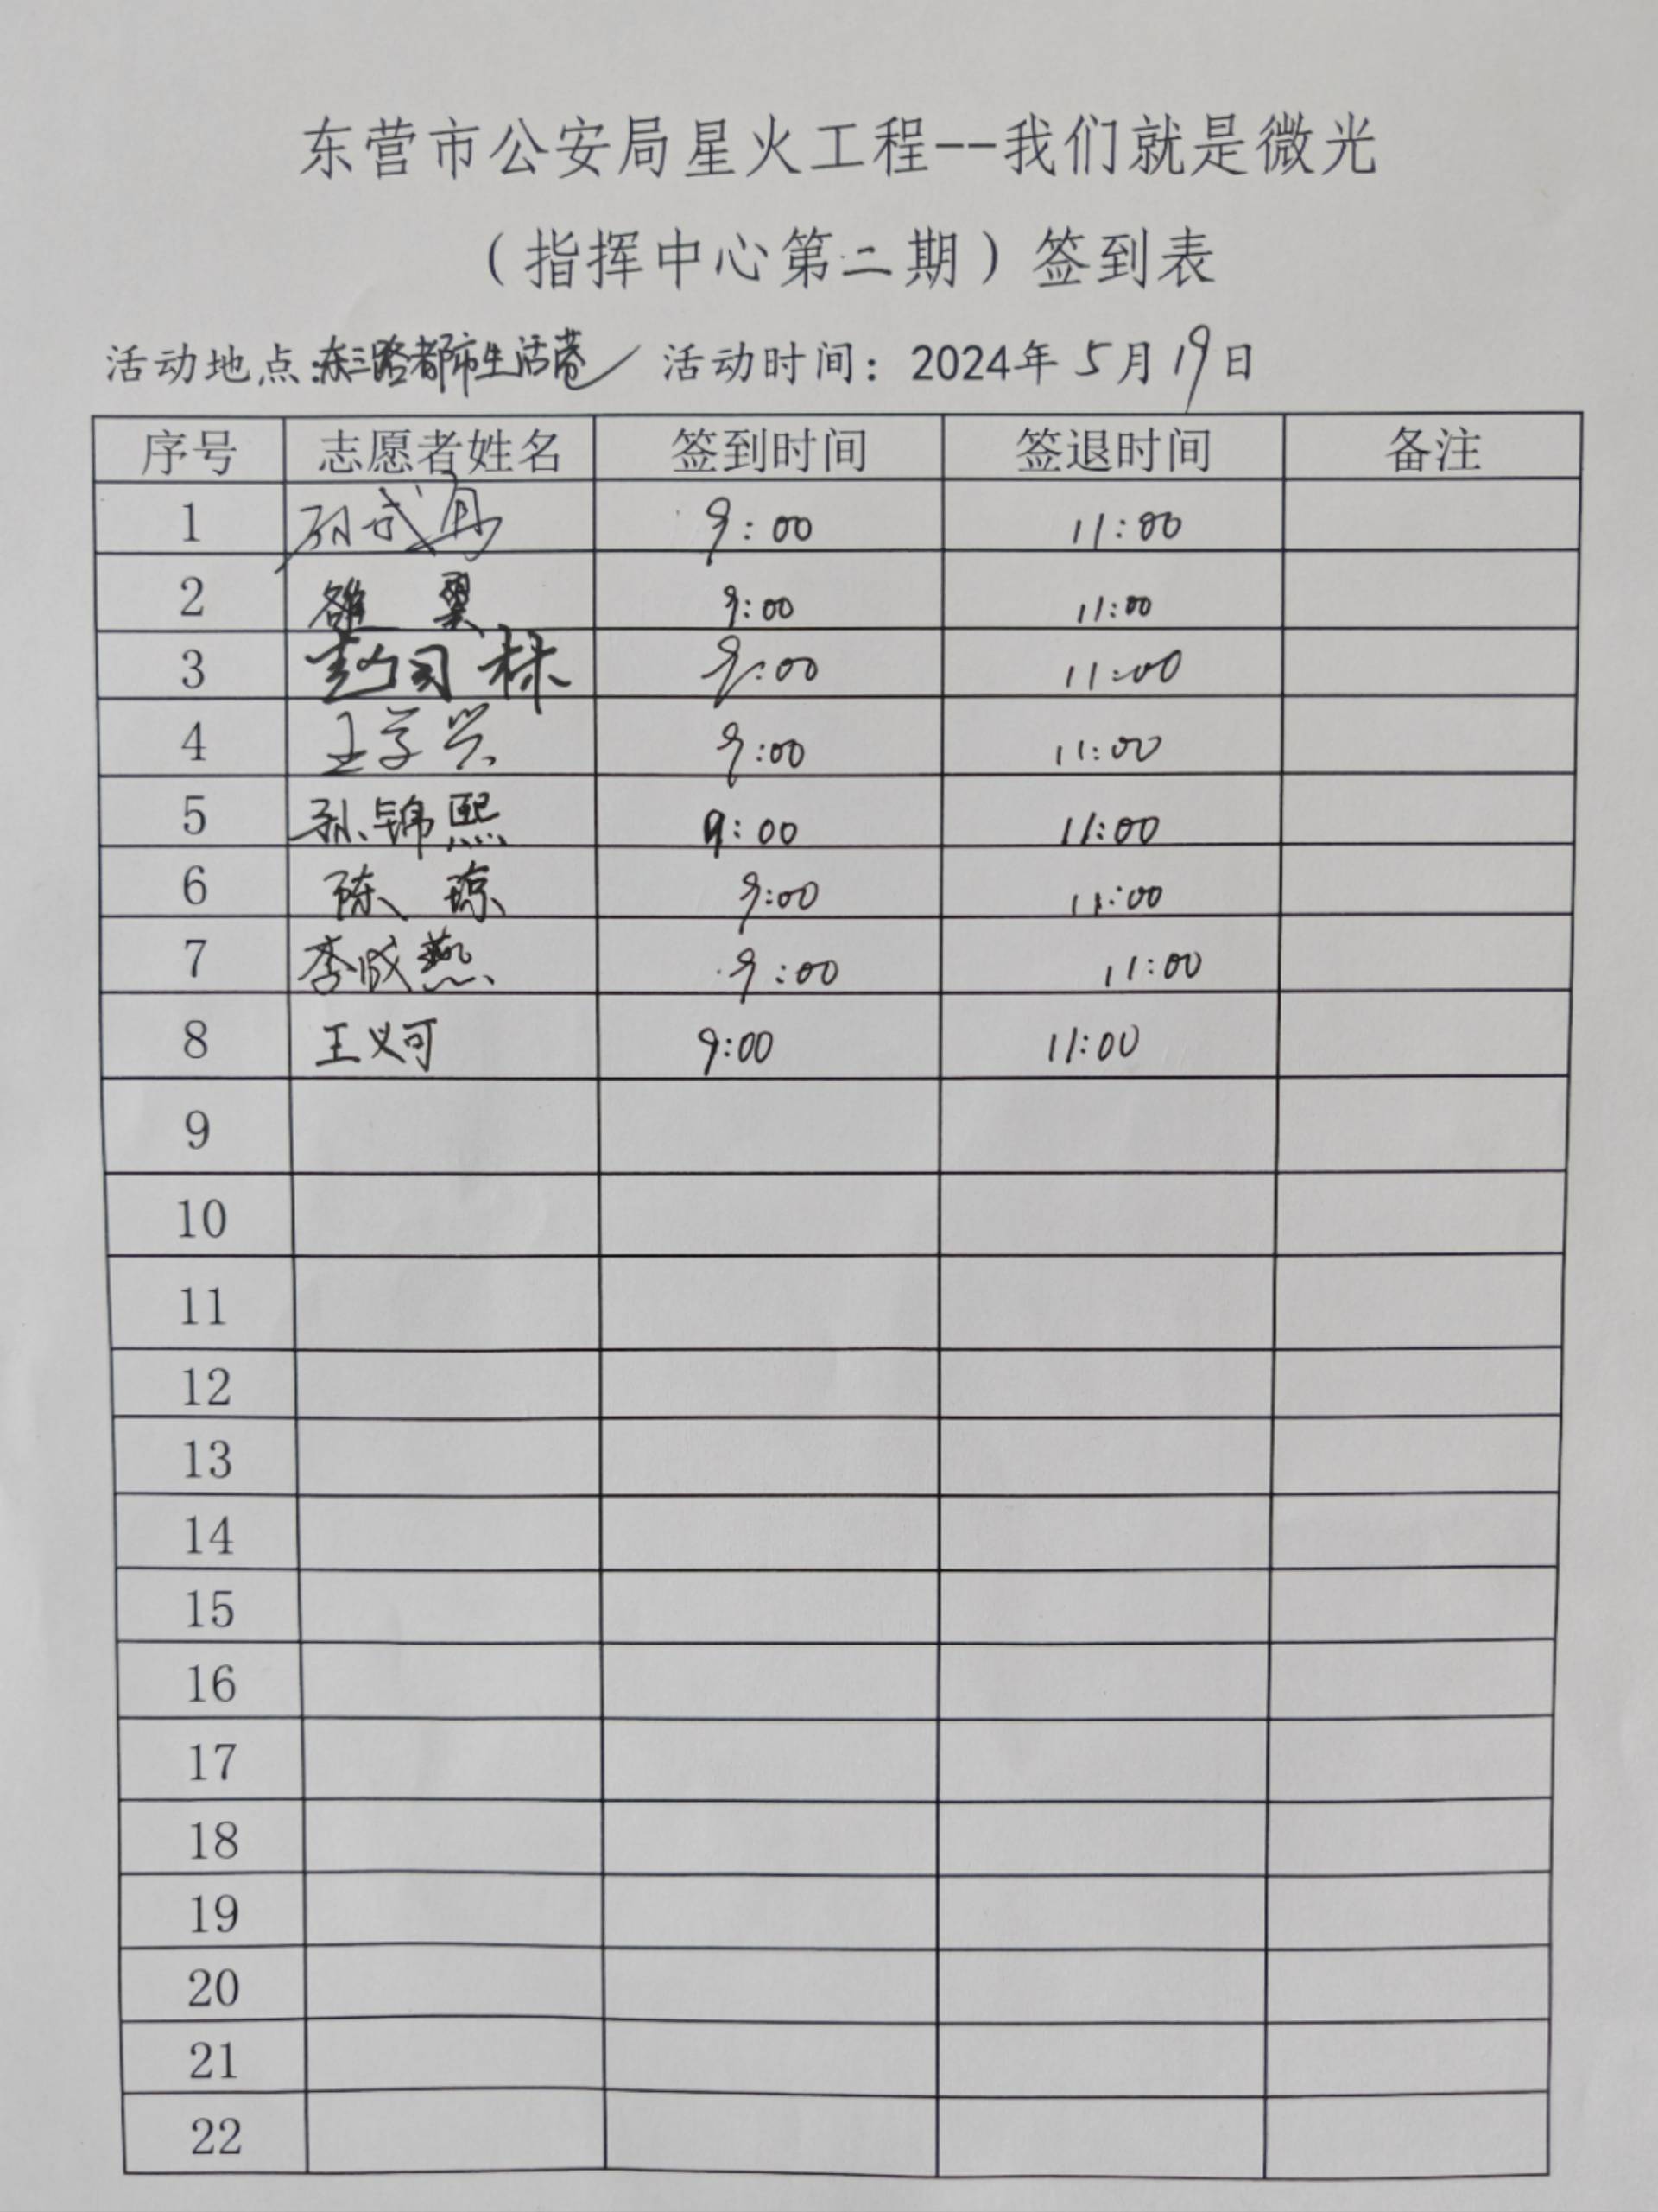 东营市公安局星火工程--我们就是微光
(指挥中心第二期)签到表
活动地点:东三路都市生活巷 活动时间:2024年5月19日
序号 志愿者姓名 签到时间 签退时间 备注
1 孙 9:00 11:00
2 翼 9:00 11:00
3 9:00 11:00
4 王学兴 9:00 11:00
5 孙锦熙 9:00 11:00
6 陈琼 9:00 11:00
7 李成燕 9:00 11:00
8 王义可 9:00 11:00
9
10
11
12
13
14
15
16
17
18
19
20
21
22